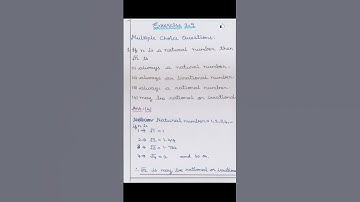 Exercise 2.5
Multiple Choice Questions:
If n is a natural number then
√n is
(i) always a natural number.
(ii) always an irrational number
(iii) always a rational number
(iv) may be rational or irrational
Ans: (iv)
Natural number = 1, 2, 3, 4...
If n is
1 → √1 = 1
2 → √2 = 1.414
3 → √3 = 1.732
4 → √4 = 2 and so on.
∴ √n is may be rational or irrational